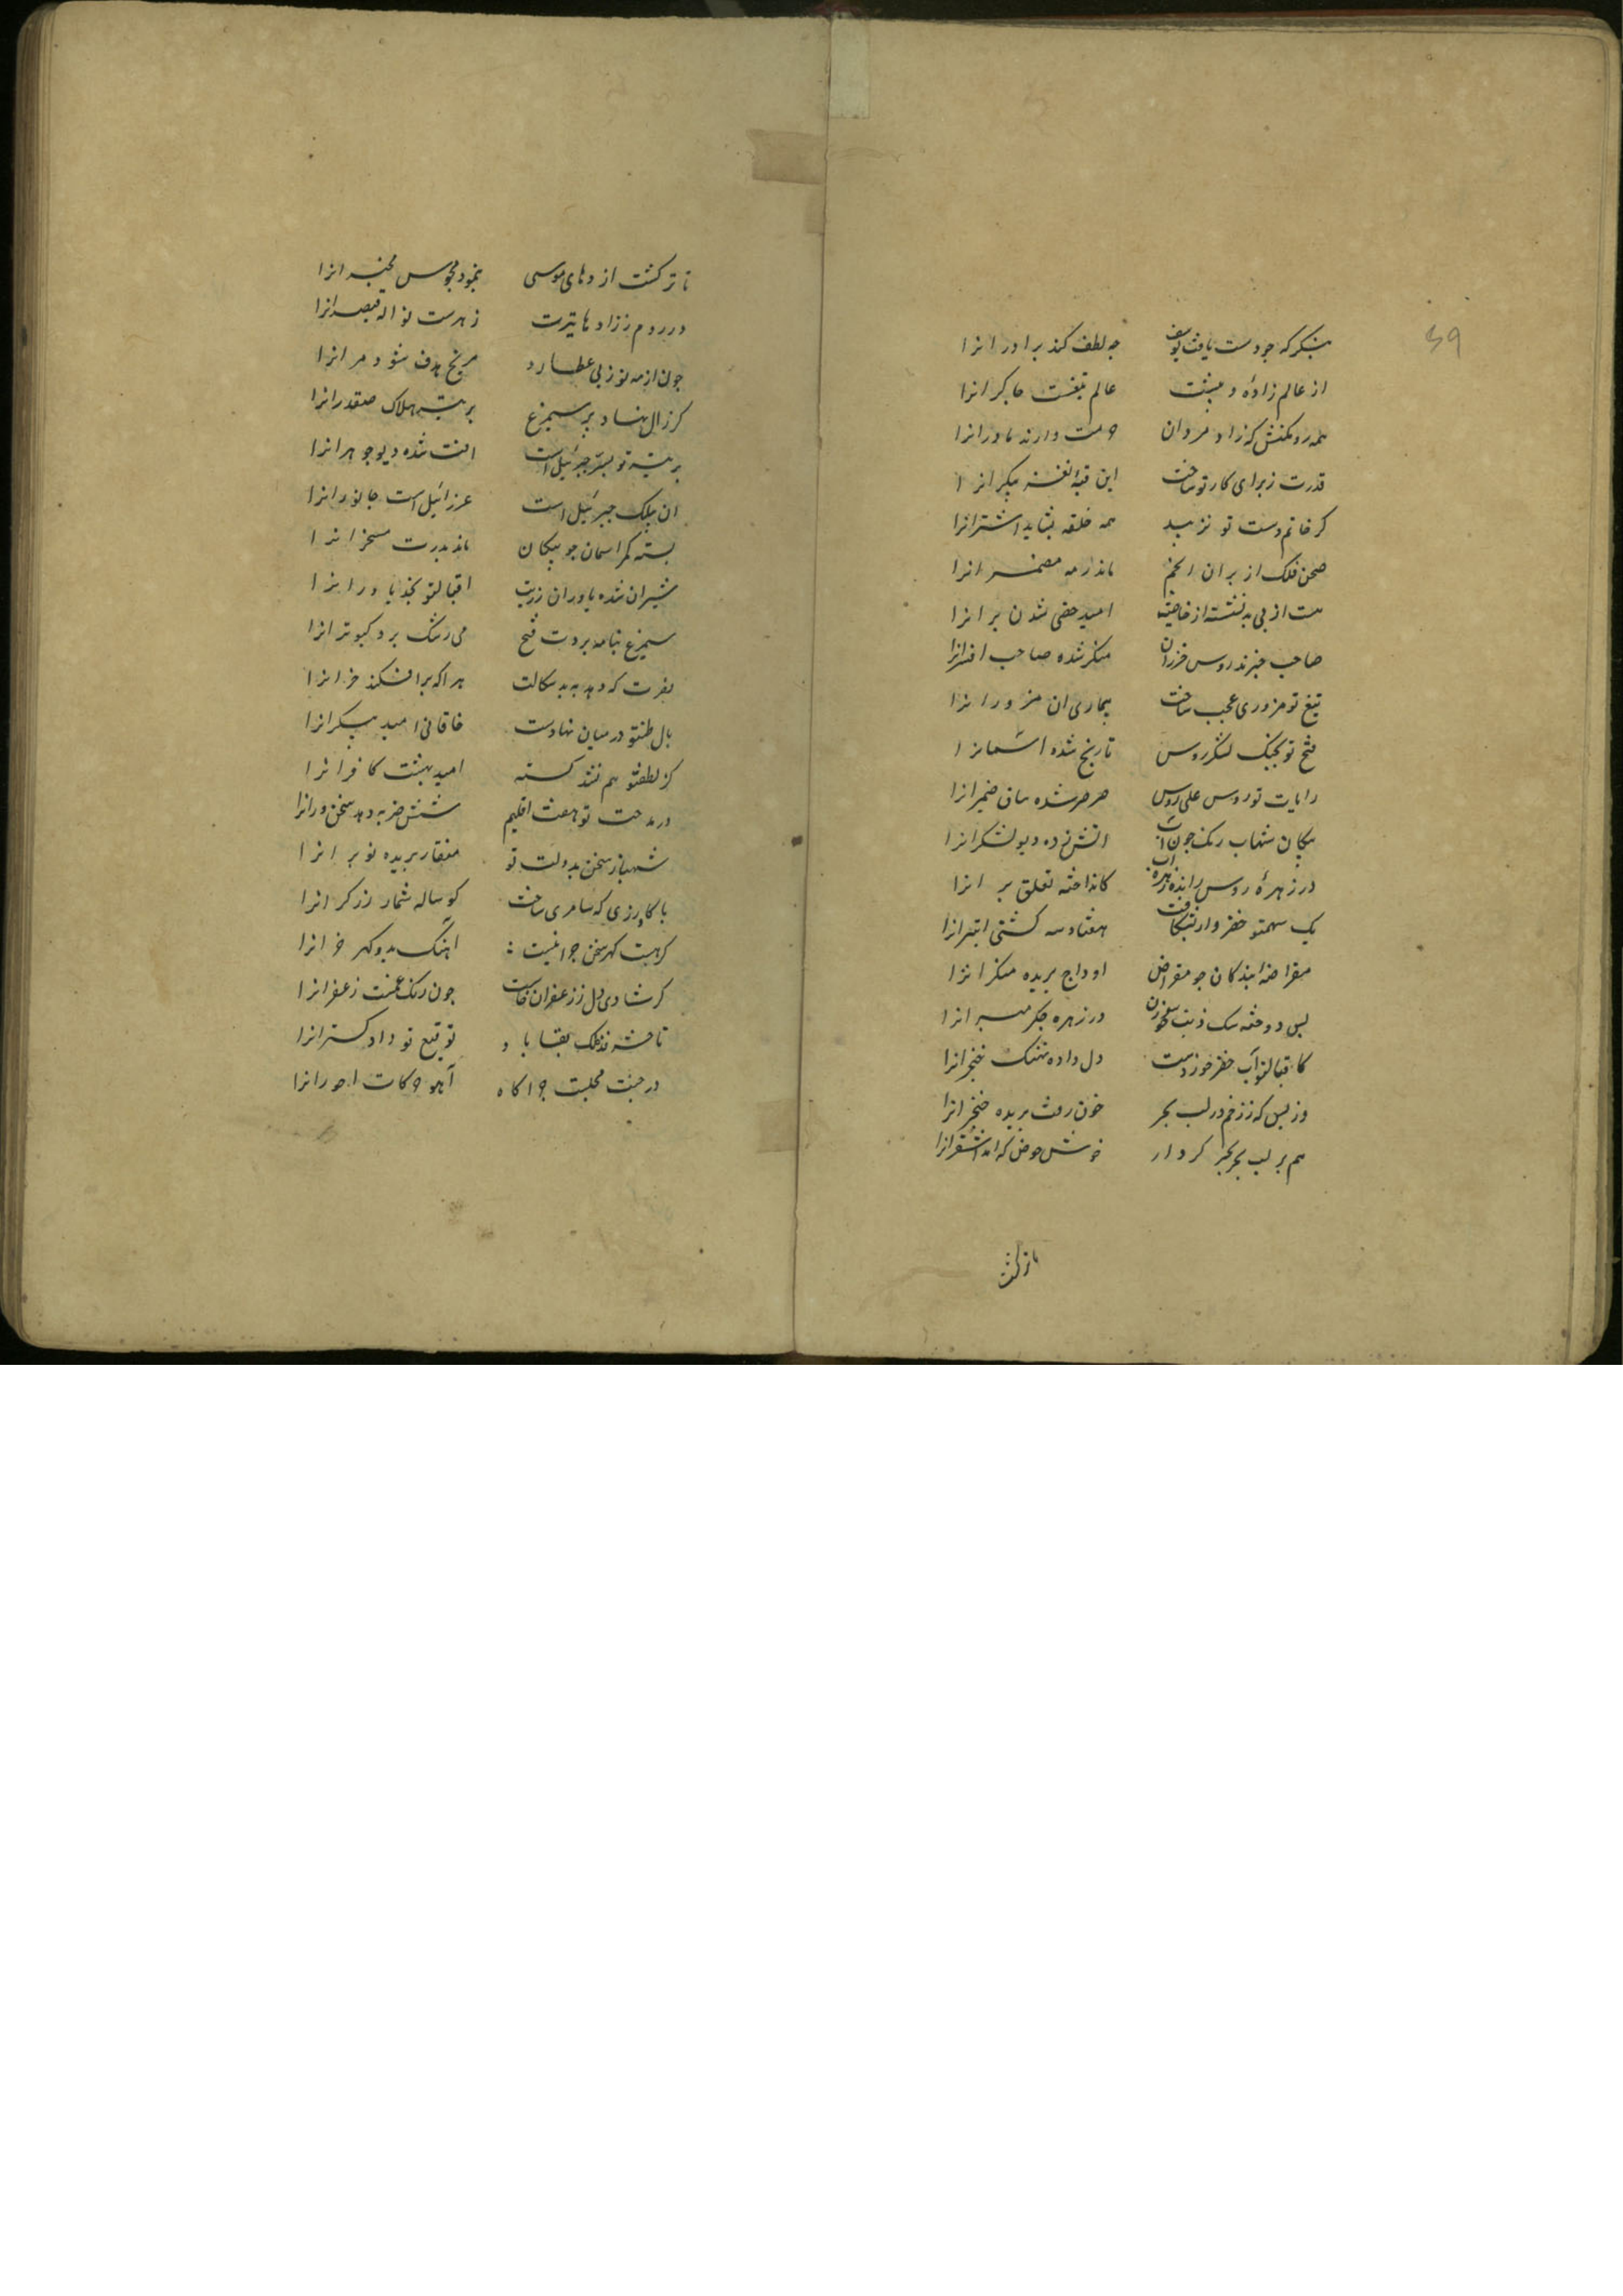 بنگر که چو دست یافت یوسف جه لطف کند برادرانرا
از عالم زادهٔ و پیشت عالم تبغست چاکرانرا
همه رو مکنش که زاد مردان حرمت دارند مادرانرا
قدرت ز برای کار تو ساخت این قبهٔ نغز بیکرانرا
کر خاتم دست تو نزیبد هم حلقه بشاید اشترانرا
صحن فلک از بزان انجم ماند رمه مضمرانرا
هست از پی برنشست از خاصت امید خصی شدن برانرا
صاحب خبرند روس خزران منکر شده صاحب افسرانرا
تیغ تو مزوری عجب ساخت بیماری ان مزورانرا
فتح تو بجنک لشکر روس تاریخ شده اسمانرا
رایات تو روس علی روس صرصر شده ساق ضمیرانرا
پیکان شهاب رنک چون آب اتش زده دیو لشکرانرا
در زهرهٔ روس رانده زهر آب کانداخته یغلق برانرا
یک سهمتو خضروار بشکافت هفتاد و سه کشتی ابترانرا
مقراضه بندکان چو مقراض اوداج بریده منکرانرا
بس دوخته سک زنت چو سوزن در زهره جکر مبترانرا
کاقبالتو آب خضر خوردست دل داده نهنک خنجرانرا
وز بس که ز زخم در لب بحر خون رفت بریده خنجرانرا
هم بر لب بحر بحر کردار خوش حوض که اند اشقرانرا
بازگشت
تا تر کشت اژدهای موسی بنمود مجوس مخبرانرا
در روم ز اژدهای تیرت زهرست نواله قیصرانرا
چون از مه نو زنی عطارد مریخ هدف شود مرانرا
کر زال نهاد پر سیمرغ بر تیر هلاک صفدرانرا
بر تیر تو پر جبرئیل است افت شده دیو جوهرانرا
ان بیلک جبرئیل است عزرائیل است جانورانرا
بسته کمر اسمان چو پیکان ماند بدرت مسخرانرا
شیران شده یاوران رزمت اقبالتو نجده یاورانرا
سیمرغ بنامه بردن فتح می رشک برد کبوترانرا
نفرت که دهد به بدسکالت هرا که برافکند خرانرا
بالطفتو در میان نهادست خاقانی امید بیکرانرا
کز لطفتو هم نشد کسسته امید بهشت کافرانرا
در مدحت تو بهفت اقلیم شش ضربه دهد سخنورانرا
شهباز سخن بدولت تو منقار بریده نوپرانرا
با کاو زری که سامری ساخت کوساله شمار زرکرانرا
کر هست کهر سخن چرا نیست : اهنک بدو کهر خرانرا
کر شادی دل ز زعفران خاست چون رنک غمست زعفرانرا
تا حشر فذلک بقا باد توقیع تو داد کسترانرا
در جنت مجلست چراکاه آهو حرکات احورانرا